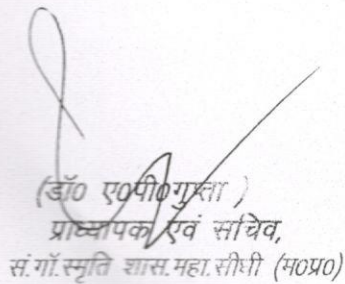 (डॉ0 ए0पी0गुप्ता )
प्राध्यापक एवं सचिव,
सं.गाँ.स्मृति शास.महा.सीधी (म0प्र0)